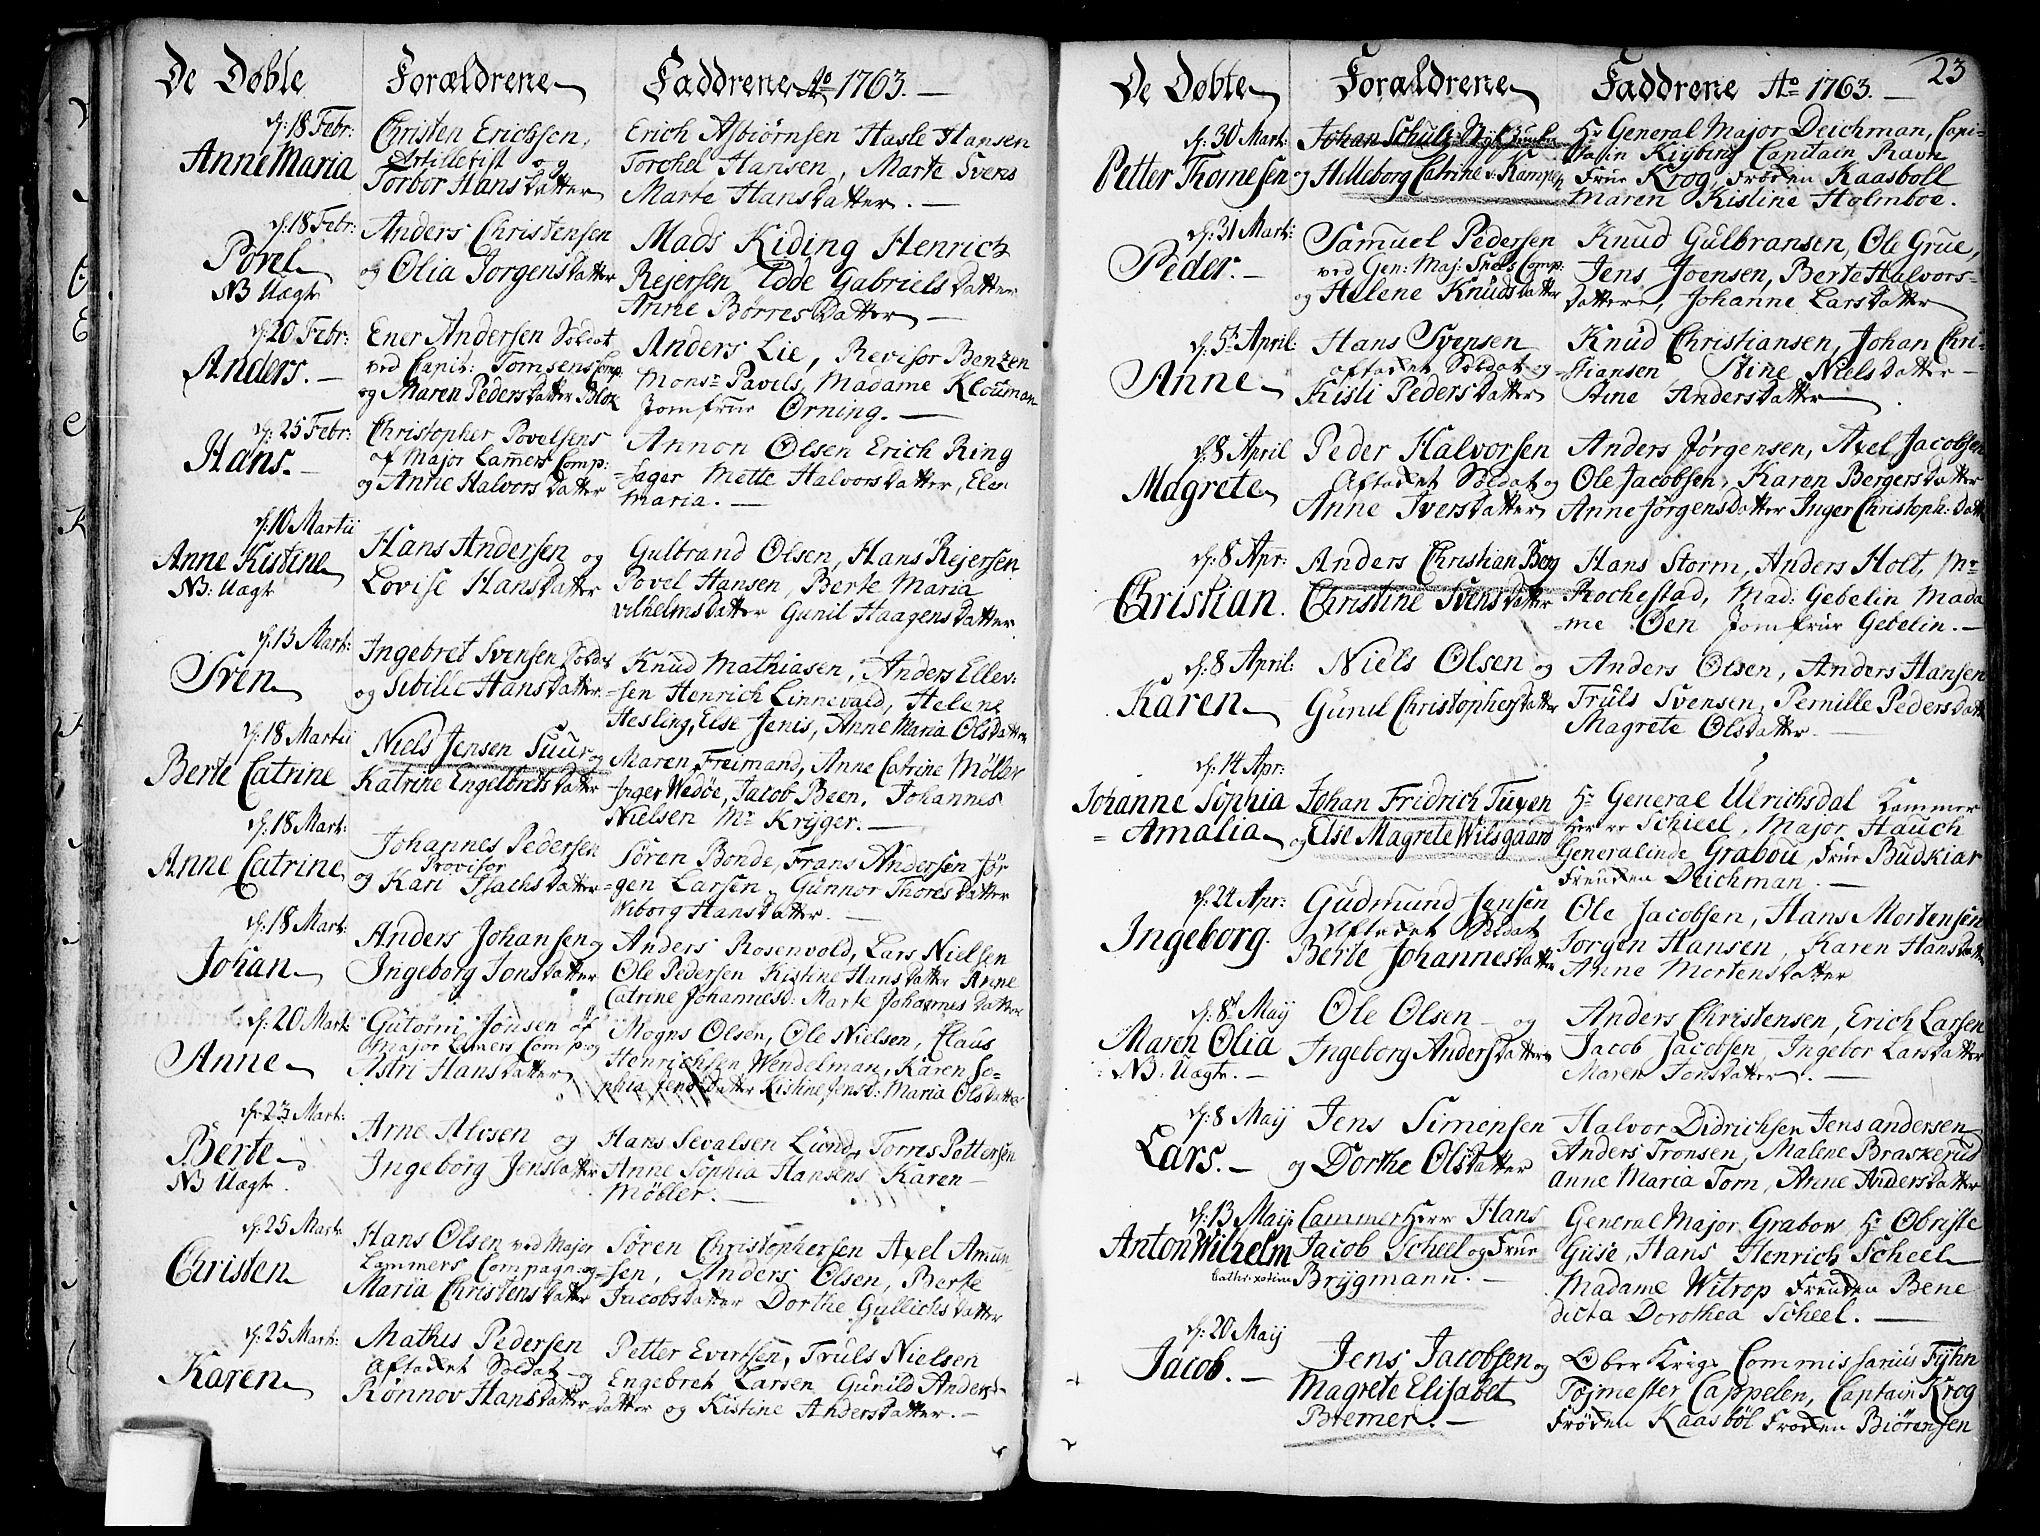 De Døbte Forældrene Faddrene Ao 1763. —
d: 18 Febr:
Anne Maria
Christen Erichsen,
Artillerist og
Torbor Hansdatter
Erich Asbiørnsen Hasle Hansen
Torchel Hansen, Marte Svens
Marte Hansdatter. —
d: 18 Febr:
Povel
NB Uagt
Anders Christensen
og Olia Jorgensdatter
Mads Kiding Henrich
Rejersen Edde Gabrielsdatter
Anne Børresdatter —
d: 20 Febr:
Anders. —
Ener Andersen Soldat
ved Capit: Tomsens Comp:
og Maren Pedersdatter Blok
Anders Lie, Revisor Bentzen
Monsr Pavels, Madame Klousman
JomfrueØrning. —
d: 25 Febr:
Hans. —
Christopher Povelsens
af Major Lamers Comp:
og Anne Halvorsdatter
Annon Olsen Erich Ring
-sager Mette Halvorsdatter, Ele
maria. —
d: 16 Martii
Anne Kistine
NB: Uagt
Hans Andersen og
Lovise Hansdatter
Gulbrand Olsen, Hans Rejersen
Povel Hansen, Berte Maria
Vilhelmsdatter Gunil Haagensdatter
d: 13 Mart:
Sven
Ingebret Svensen Soldat
og Sibille Hansdatter
Knud Mathiasen, Anders Ellev-
-sen Henrich Linnevald, Helene
Hesling, Else Jenis, Anne Maria Olsdatter
d: 18 Martii
Berte Catrine
Niels Jensen Suur og
Katrine Engelbretsdatter
Maren Freimand, Anne Catrine Møller
Inger Wedøe, Jacob Been, Johannes
Nielsen Mr Kryger. —
d: 18 Mart:
Anne Catrine
Johannes Pedersen
Provisor
og Kari Isachsdatter
Søren Bonde, Frans Andersen Jør
-gen Larsen, Gunnor Thoresdatter
Wiborg Hansdatter. —
d: 18 Mart:
Johan
Anders Johansen og
Ingeborg Jonsdatter
Anders Rosenvold, Lars Nielsen
Ole Pedersen Kistine Hansdatter Anne
Catrine Johannesd: Marte Johannesdatter
d: 20 Mart:
Anne
Gutorm Jonsen af
Major Lamers Comp: og
Astri Hansdatter
Mogns Olsen, Ole Nielsen, Claus
Henrichsen Wendelman, Karen So-
phia Jensdatter Kistine Jensd: Maria Olsdatter
d: 23 Mart:
Berte
NB Uagt
Arne Alvsen og
Ingeborg Jensdatter
Hans Sevalsen Lund, Torres Pettersen
Anne Sophia Hansens Karen
Møbler. —
d: 25 Mart:
Christen
Hans Olsen ved Major
Lammers Compagn: og
Maria Christensdatter
Søren Christophersen Axel Amun-
-sen, Anders Olsen, Berte
Jacobsdatter Dorthe Gullichsdatter
d: 25 Mart:
Karen
Mathis Pedersen
Aftaket Soldat og
Rønnov Hansdatter
Petter Evertsen, Truls Nielsen
Engebret Larsen Gunild Anders-
datter og Kistine Andersdatter. —
23
De Døbte Forældrene Faddrene Ao 1763. —
d: 30 Mart:
Petter Thomesen
Johan Schultz
og Hilleborg Catrine v: Kampen
Hr General Major Deichman, Capi-
tain Kyberg Capitain Ravn
Frue Krog, Frøken Kaasboll
Maren Kistine Holmboe.
d: 31 Mart:
Peder. —
Samuel Pedersen
ved Gen: Maj: Comp:
og Helene Knudsdatter
Knud Gulbransen, Ole Grue,
Jens Joensen, Berte Halvors-
datter, Johanne Larsdatter
d: 5t April:
Anne
Hans Svensen
aftaket Soldat og
Kisti Pedersdatter
Knud Christiansen, Johan Chri-
stiansen Stine Nielsdatter —
Stine Andersdatter
d: 8 April
Magrete
Peder Halvorsen
Aftaket Soldat og
Anne Iversdatter
Anders Jørgensen, Axel Jacobsen
Ole Jacobsen, Karen Bergersdatter
Anne Jørgensdatter Inger Christoph:datt
d: 8 Apr:
Christian.
Anders Christian Berg
Christine Svensdatter
Hans Storm, Anders Holt, Mr
Rochestad, Mad: Gebelin Mada
-me Øen Jomfrue Gebelin. —
d: 8 April:
Karen
Niels Olsen og
Gunil Christophersdatter
Anders Olsen, Anders Hansen
Truls Svensen, Pernille Pedersdatt
Magrete Olsdatter. —
d: 14 Apr:
Johanne Sophia
= Amalia
Johan Fridrich Tuxen
og Else Magrete Wilsgaard
Hr General Ulrichsdal Kammer
Herre Schieel, Major Hauch
Generalinde Grabou, Frue Budkiar
Freuken Deichman. —
d: 22 Apr:
Ingeborg.
Gudmund Jensen
Aftaket Soldat
Berte Johannesdatter
Ole Jacobsen, Hans Mortensen
Jorgen Hansen, Karen Hansdatter
Anne Mortensdatter
d: 8t May
Maren Olia
: NB: Uagt. —
Ole Olsen — og
Ingeborg Andersdatter
Anders Christensen, Erich Larsen
Jacob Jacobsen, Ingebor Larsdatter
Maren Jonsdatter. —
d: 8 May
Lars. —
Jens Simensen
og Dorthe Olsdatter
Halvor Didrichsen Jens andersen
Anders Tronsen, Malene Braskerud
anne Maria Torn, Anne Andersdatter
d: 13 May:
Anton Wilhelm
Cammer Herr Hans
Jacob Scheel og Frue
Brygmann. —
General Major Grabow Hr Obriste
Guise, Hans Henrich Scheel
Madame Witrop Freuken Bene
dicta Dorothea Scheel. —
d: 20 May
Jacob. —
Jens Jacobsen og
Magrete Elisabet
Bremer. —
Ober Krigs Commissarius Fyhn
Tøjmester Cappelen, Captain Krog
Frøken Kaasbøl Frøken Biørensen